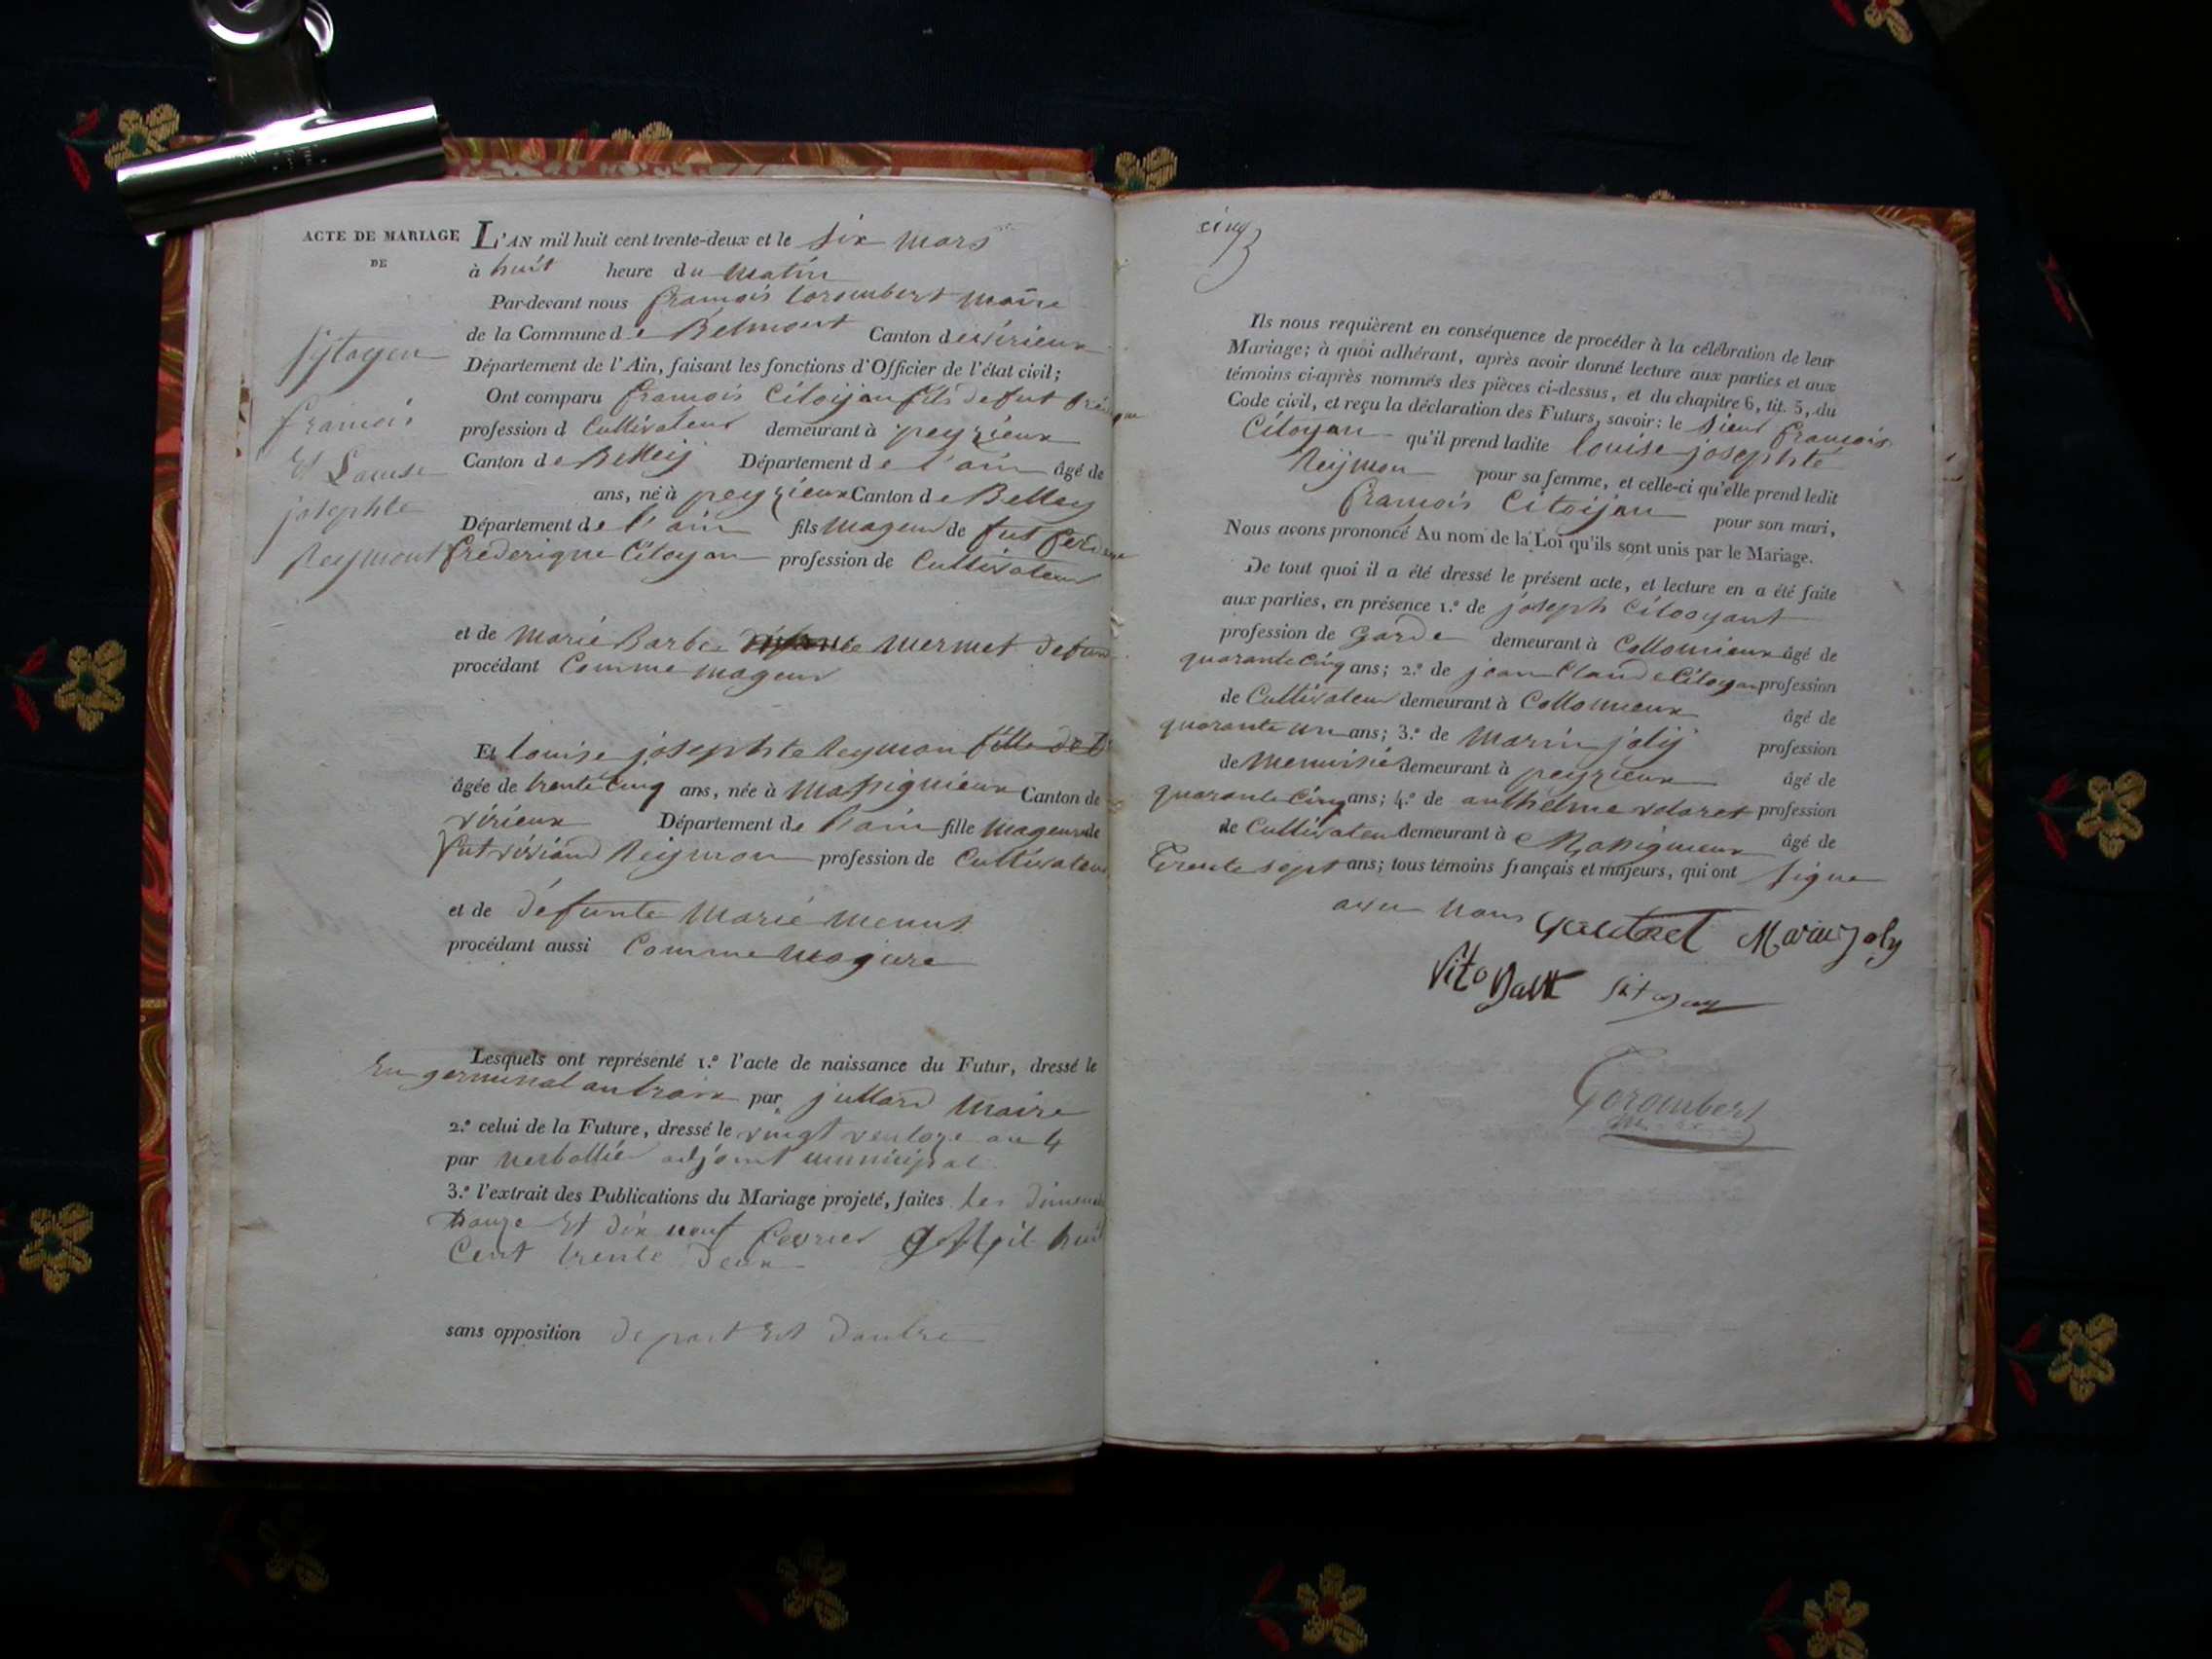 ACTE DE MARIAGE
DE
Sytoyen
françois
Et Louise
josephte
Reymont
L'AN mil huit cent trente-deux et le six mars
à huit heure du matin
Par-devant nous françois Gorombert maire
de la Commune de Belmont Canton de virieux
Département de l'Ain, faisant les fonctions d'Officier de l'état civil;
Ont comparu françois Citoijan fils de fut
profession d Cultivateur demeurant à peyzieux
Canton de Belleij Département de l'ain âgé de
ans, né à peyzieux Canton de Belley
Département de l'ain fils mageur de fut
frederique Citoyan profession de Cultivateur
et de Marie Barbe mermet
procédant Comme mageur
Et louise josephte Reymon fille de
âgée de trente cinq ans, née à Massignieux Canton de
virieux Département de l'ain fille mageur de
fut viviand Reijmon profession de Cultivateur
et de défunte Marie
procédant aussi Comme magiure
Lesquels ont représenté 1.º l'acte de naissance du Futur, dressé le
En germinal an troix par jullard maire
2.º celui de la Future, dressé le vingt ventoze an 4
par adjoint municipal
3.º l'extrait des Publications du Mariage projeté, faites les
Douze Et dix neuf fevrier Mil huit
Cent trente deux
sans opposition de part Et dautre
cinq
Ils nous requièrent en conséquence de procéder à la célébration de leur
Mariage; à quoi adhérant, après avoir donné lecture aux parties et aux
témoins ci-après nommés des pièces ci-dessus, et du chapitre 6, tit. 5, du
Code civil, et reçu la déclaration des Futurs, savoir: le sieur françois
Citoyan qu'il prend ladite louise josephte
Reijmon pour sa femme, et celle-ci qu'elle prend ledit
françois Citoijan pour son mari,
Nous avons prononcé Au nom de la Loi qu'ils sont unis par le Mariage.
De tout quoi il a été dressé le présent acte, et lecture en a été faite
aux parties, en présence 1.º de joseph Citooyant
profession de Garde demeurant à Collomieux âgé de
quarante cinq ans; 2.º de jean Claude Citoyan profession
de Cultivateur demeurant à Collomieux âgé de
quarante un ans; 3.º de Marin jolij profession
de Menuisié demeurant à peyzieux âgé de
quarante cinq ans; 4.º de anthelme volaret profession
de Cultivateu demeurant à Massignieux âgé de
Trente sept ans; tous témoins français et majeurs, qui ont signe
avec nous Marin Joly
Gorombert